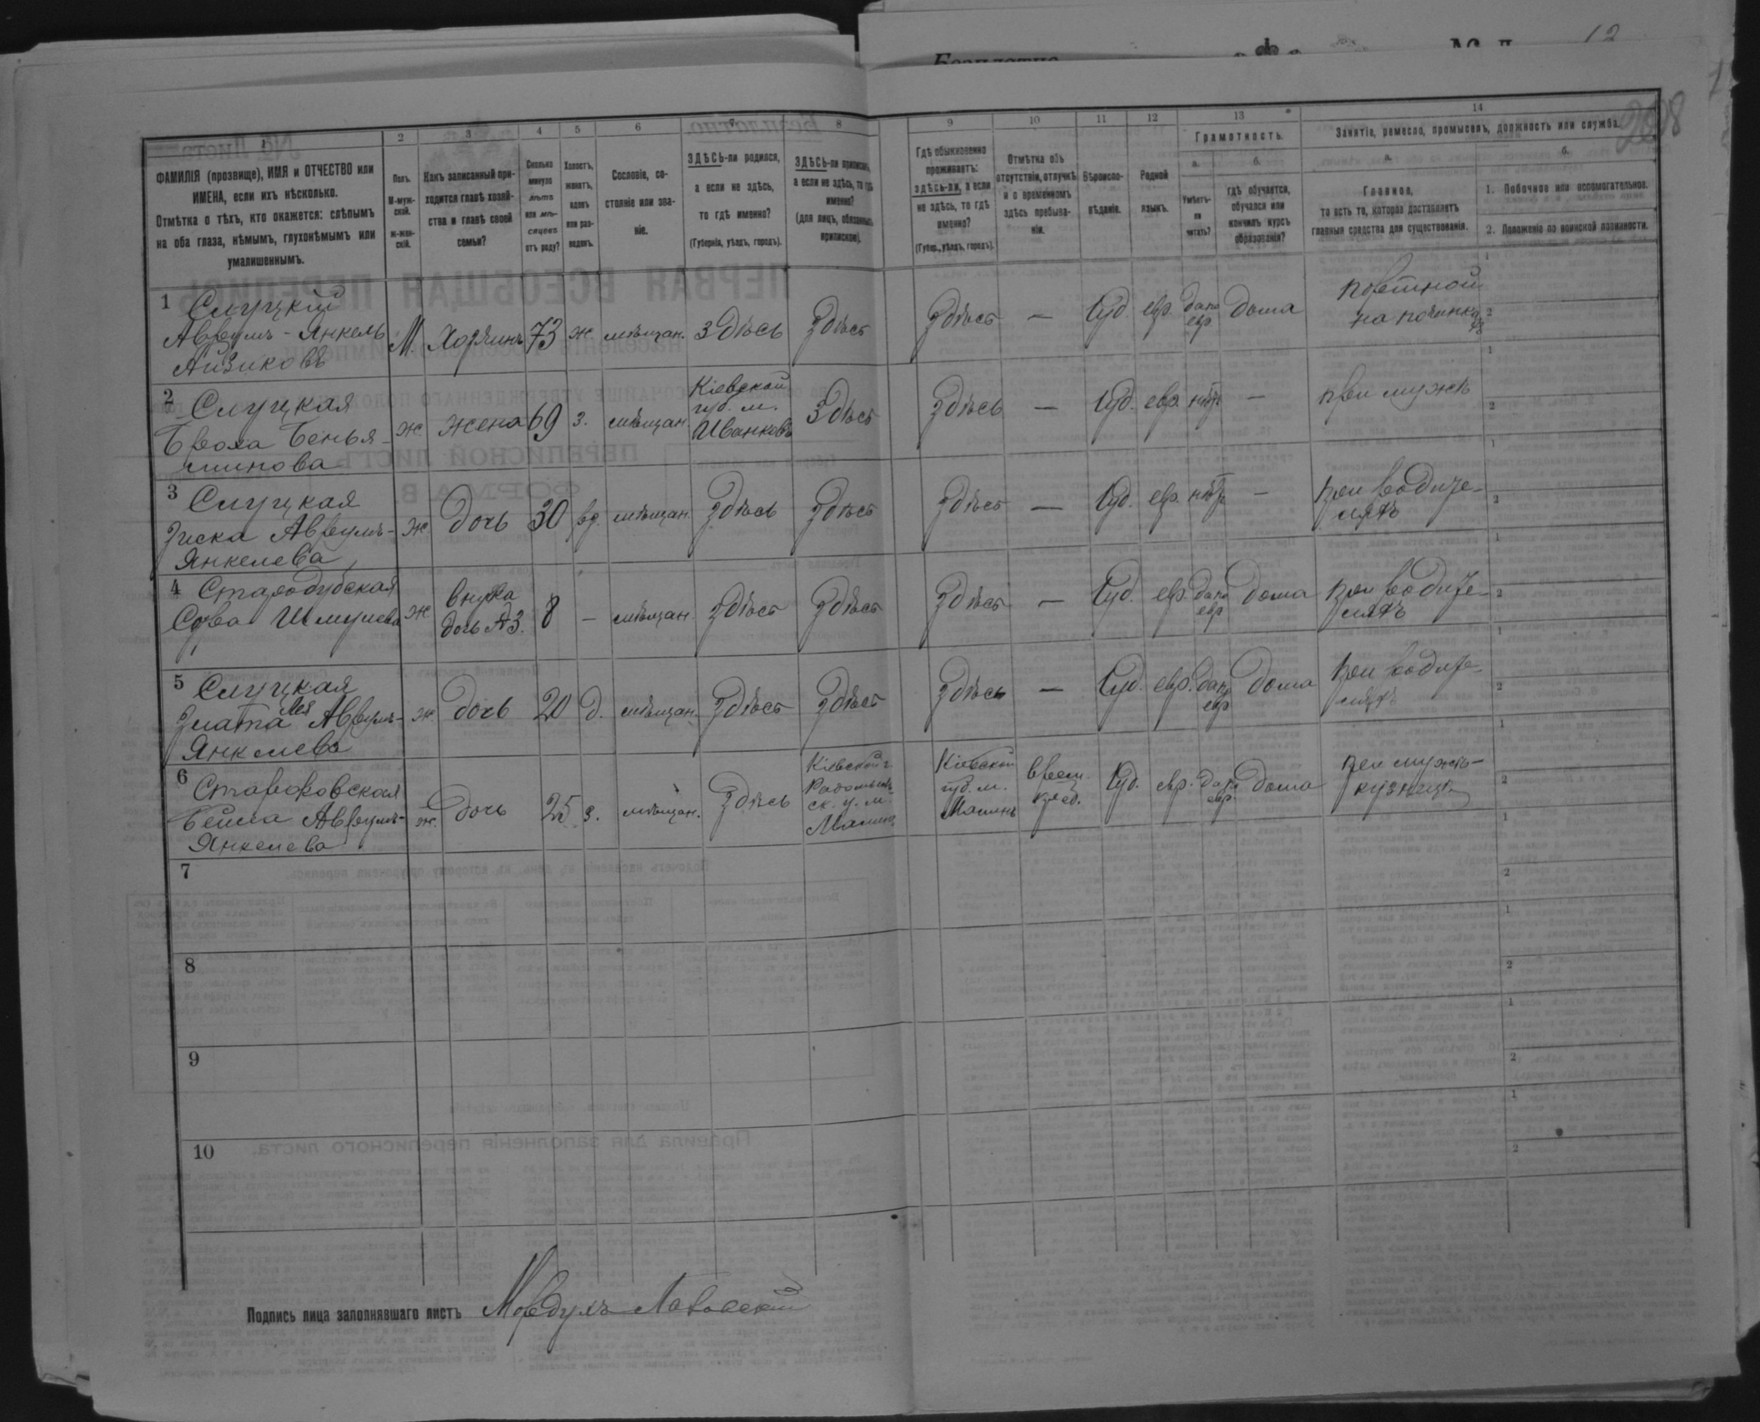 12
Безплатно
298
1 2 3 4 5 6 7 8 9 10 11 12 13 14
ФАМИЛІЯ (прозвище), ИМЯ и ОТЧЕСТВО или
ИМЕНА, если ихъ нѣсколько.
Отмѣтка о тѣхъ, кто окажется: слѣпымъ
на оба глаза, нѣмымъ, глухонѣмымъ или
умалишеннымъ.
Полъ.
М-муж-
ской.
ж-жен-
скій.
Какъ записанный при-
ходится главѣ хозяй-
ства и главѣ своей
семьи?
Сколько
минуло
лѣтъ
или мѣ-
сяцевъ
отъ роду?
Холостъ,
женатъ,
вдовъ
или раз-
веденъ.
Сословіе, со-
стояніе или зва-
ніе.
ЗДѢСЬ-ли родился,
а если не здѣсь,
то гдѣ именно?
(Губернія, уѣздъ, городъ).
ЗДѢСЬ-ли приписанъ,
а если не здѣсь, то гдѣ
именно?
(для лицъ, обязанныхъ
припискою).
Гдѣ обыкновенно
проживаетъ:
здѣсь-ли, а если
не здѣсь, то гдѣ
именно?
(Губер., уѣздъ, городъ).
Отмѣтка объ
отсутствіи, отлучкѣ
и о временномъ
здѣсь пребыва-
ніи.
Вѣроиспо-
вѣданіе.
Родной
языкъ.
Грамотность.
а. б.
Умѣетъ-
ли
читать?
гдѣ обучается,
обучался или
кончилъ курсъ
образованія?
Занятіе, ремесло, промыселъ, должность или служба.
а. б.
Главное,
то есть то, которое доставляетъ
главныя средства для существованія.
1. Побочное или вспомогательное.
2. Положеніе по воинской повинности.
1 Слуцкій
Авраумъ-Янкель
Айзиковъ
М Хозяинъ 73 ж мѣщан. здѣсь здѣсь здѣсь — Іуд. евр. да по евр дома
портной
на починку
2 Слуцкая
Броха Бенья-
минова
ж жена 69 з. мѣщан.
Кіевской
губ. м.
Иванковъ
здѣсь здѣсь — Іуд. евр нѣтъ — при мужѣ
3 Слуцкая
Зиска Авраумъ-
Янкелева
ж дочь 30 вд. мѣщан. здѣсь здѣсь здѣсь — Іуд. евр. нѣтъ —
при родите-
ляхъ
4 Стародубская
Сура Шмулева
ж внучка
дочь №3.
8 — мѣщан. здѣсь здѣсь здѣсь — Іуд. евр. да по евр дома
при родите-
ляхъ
5 Слуцкая
Злата Лея Авраумъ-
Янкелева
ж дочь 20 д. мѣщан. здѣсь здѣсь здѣсь — Іуд. евр. да по евр дома
при родите-
ляхъ
6
Бейла Авраумъ-
Янкелева
ж. дочь 25 з. мѣщан. здѣсь
Кіевской г.
Радомысль-
ск. у. м.
Малинъ
Кіевской
губ. м.
Малинъ
времен.
преб.
Іуд. евр. да по евр. дома
при мужѣ-
кузнецѣ
7
8
9
10
Подпись лица заполнявшаго листъ